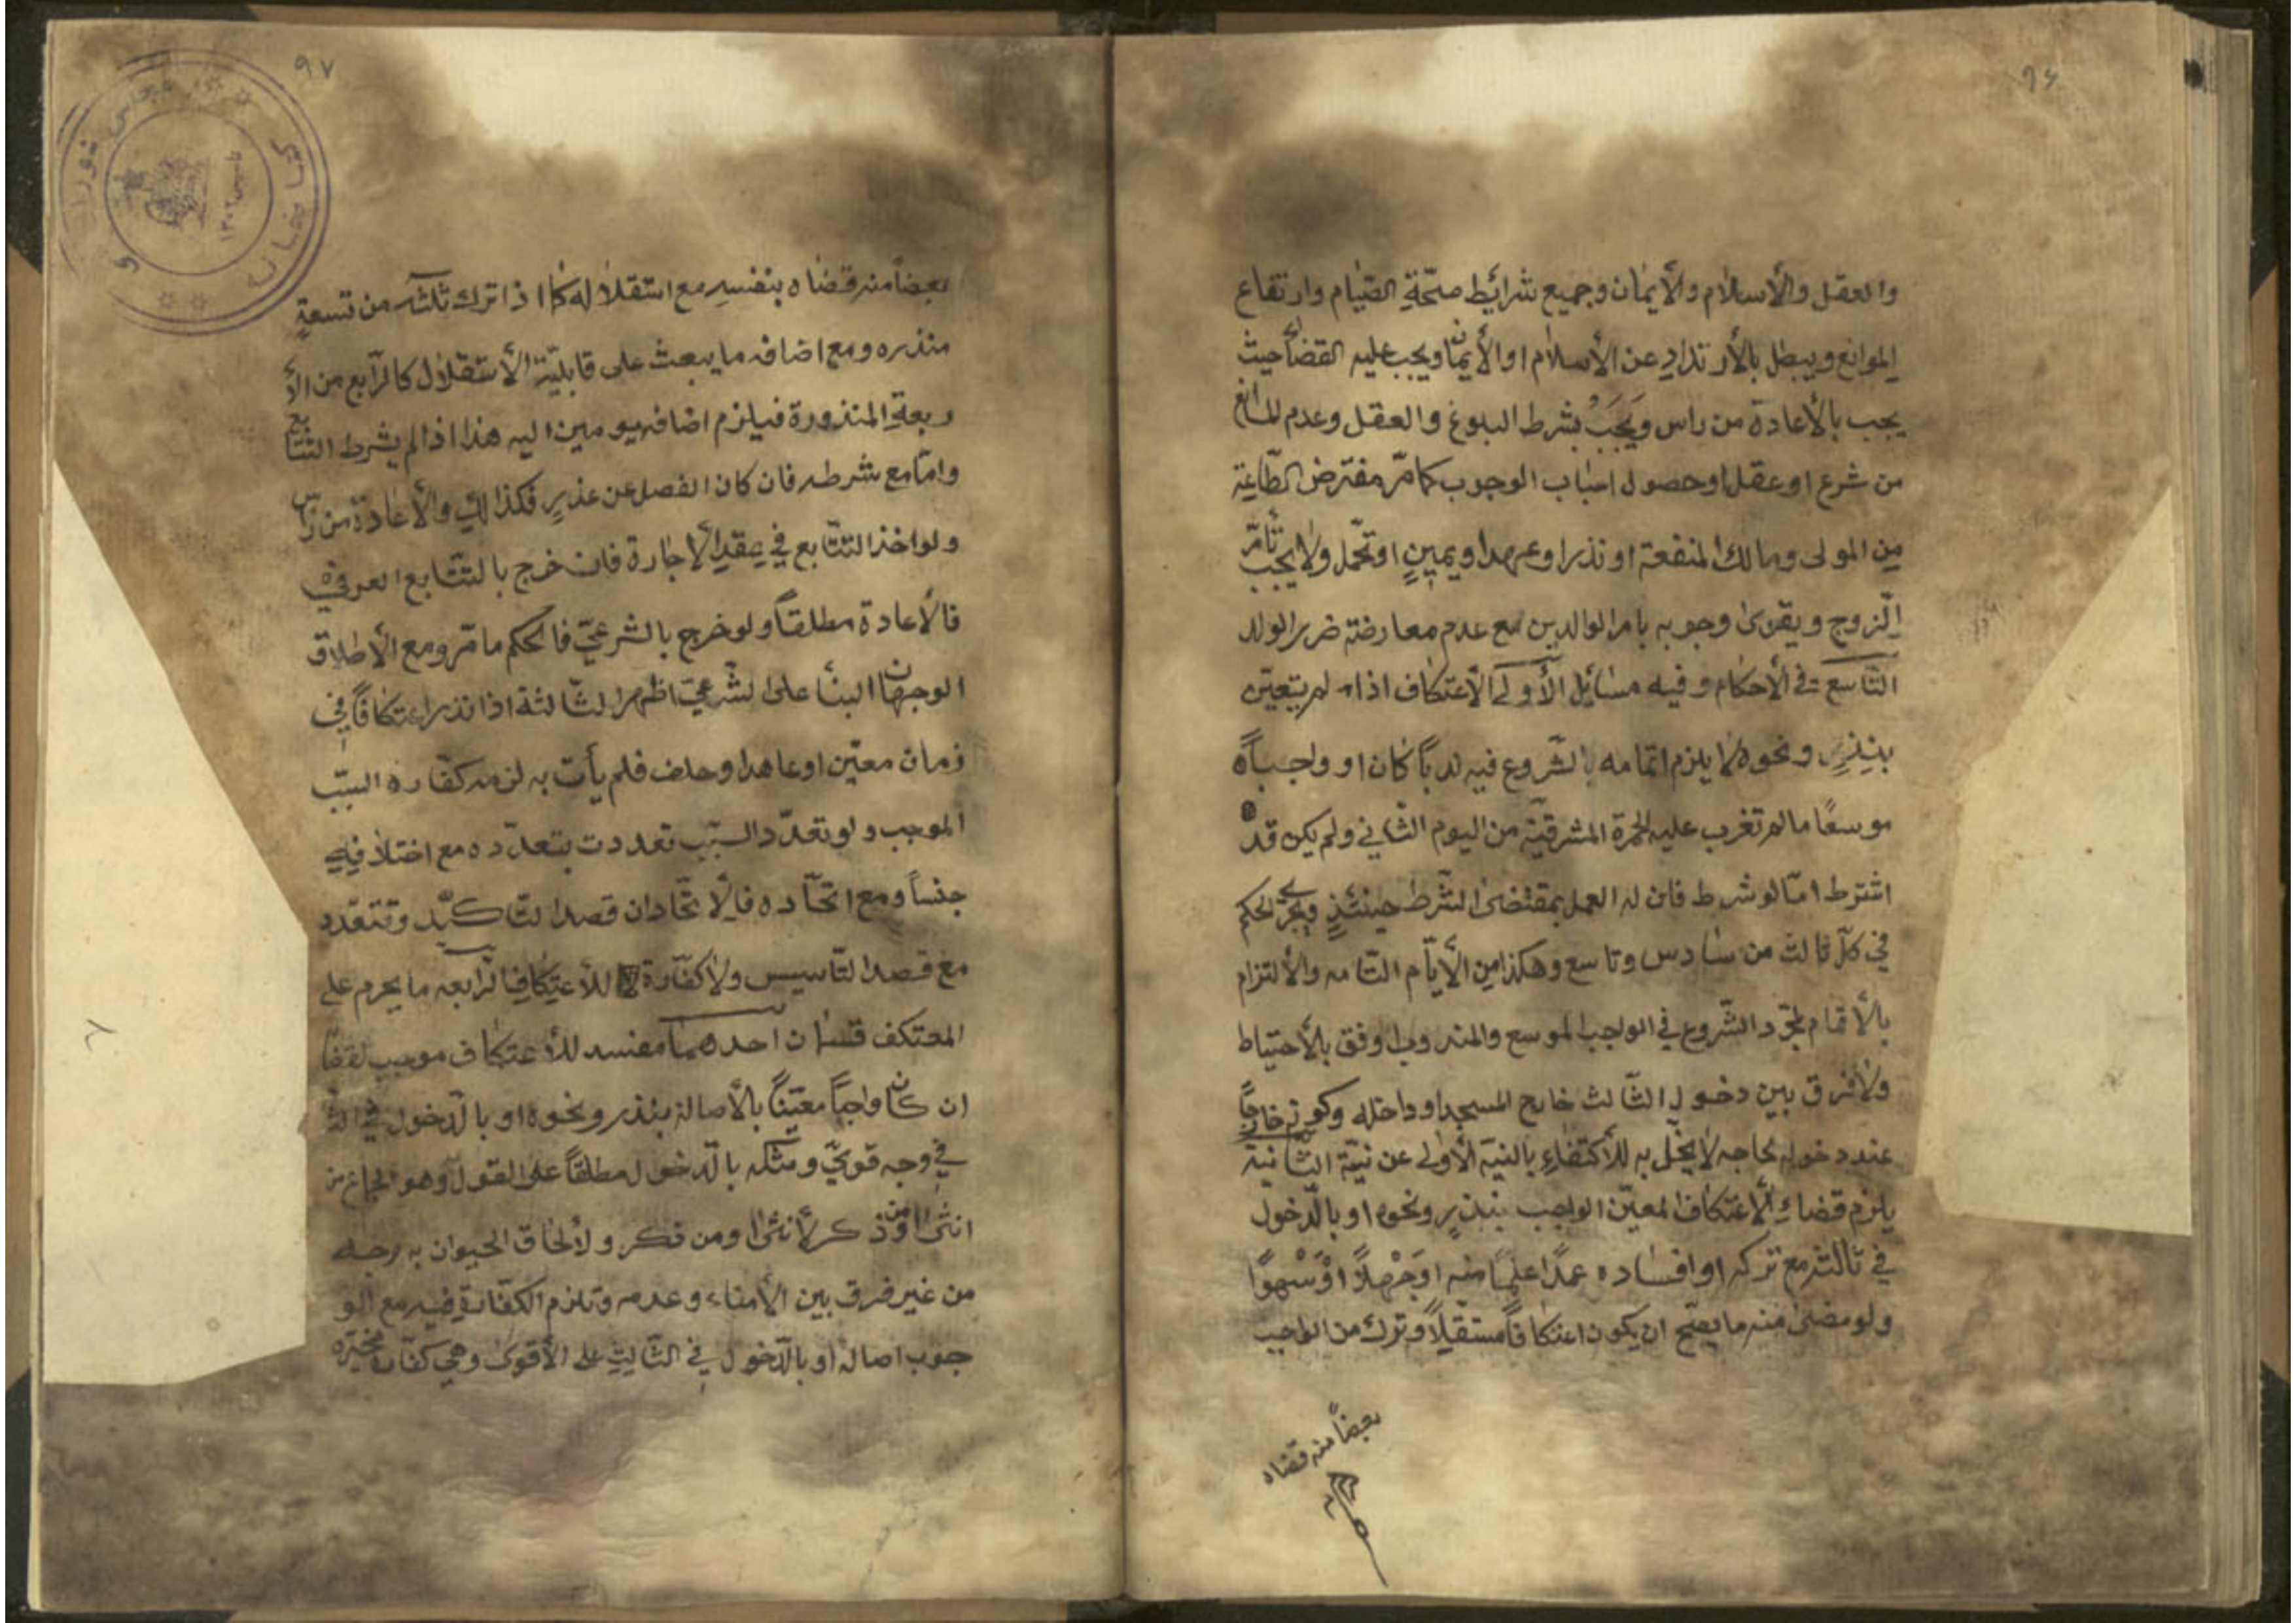 ٩٦
والعقل والأسلام والأيمان وجميع شرائط صحّة الصّيام وارتفاع
الموانع ويبطل بالأرتداد عن الأسلام او الأيمان ويجب عليه القضاء حيث
يجب بالأعادة من راس ويجب بشرط البلوغ والعقل وعدم المانع
من شرع او عقل او حصول اسباب الوجوب كامر مفترض الطّاعة
من المولى ومالك المنفعة او نذر او عهد او يمين او تحمّل ولا يجب بامر
الزوج ويقوى وجوبه بامر الوالدين مع عدم معارضته ضرر الولد
التّاسع في الأحكام وفيه مسائل الأولى الأعتكاف اذا لم يتعيّن
بنذر ونحوه لا يلزم اتمامه بالشّروع فيه ندباً كان او واجباً
موسعًا ما لم تغرب عليه الحمرة المشرقيّة من اليوم الثّاني ولم يكن قد
اشترط امّا لو شرط فان له العمل بمقتضى الشّرط حينئذٍ ويجري الحكم
في كلّ ثالث من سادس وتاسع وهكذا من الأيّام التّامه والألتزام
بالأتمام بمجرّد الشّروع في الواجب الموسع والمندوب اوفق بالأحتياط
ولا فرق بين دخول الثّالث خارج المسجد او داخله وكونه خارجاً
عند دخوله لحاجه لا يخلّ به للأكتفاء بالنيّة الأولى عن نيّة الثّانية
يلزم قضاء الأعتكاف المعيّن الواجب بنذرٍ ونحوه او بالدّخول
في ثالثه مع تركه او افساده عمدًا علماً منه او جهلاً او سهوًا
ولو مضى منه ما يصح ان يكون اعتكافاً مستقلاً وترك من الواجب
بعضاً منه قضاه
٩٧
بعضاً منه قضاه بنفسه مع استقلاله كما اذا ترك ثلثه من تسعةٍ
منذره ومع اضافه ما يبعث على قابليّة الأستقلال كالرّابع من الأ
ربعة المنذورة فيلزم اضافه يومين اليه هذا اذا لم يشرط التّتابع
وامّا مع شرطه فان كان الفصل عن عذرٍ فكذالك والأعادة من راس
ولو اخذ التتّابع في عقد الأجارة فان خرج بالتتّابع العرفي
فالأعادة مطلقاً ولو خرج بالشرعيّ فالحكم ما مّر ومع الأطلاق
الوجهان البنأ على الشّرعيّ اظهر الثّالثة اذا نذر اعتكافاً في
زمان معيّن او عاهد او حلف فلم يأت به لزمه كفّاره السّبب
الموجب ولو تعدّد السّبب تعددت بتعدّده مع اختلافه
جنساً ومع اتحّاده فالأتحّاد ان قصد التّاكيد وتتعدد
مع قصد التّاسيس ولا كفّارة للأعتكاف الرّابعه ما يحرم على
المعتكف قسمان احدهما مفسد للأعتكاف موجب لقضا
ان كان واجباً معيّناً بالأصالة بنذر ونحوه او بالدّخول في الثّا
في وجه قويّ ومثله بالدّخول مطلقاً على القول وهو الجماع من
انثى او من ذكر لأنثى او من ذكر ولألحاق الحيوان به وجه
من غير فرق بين الأمناء وعدمه وتلزم الكفّارة فيه مع الو
جوب اصالة او بالدّخول في الثّالث على الأقوى وهي كفّارة مخيّره
كتابخانه
مجلس شورای
تاسیس ١٣٠٢